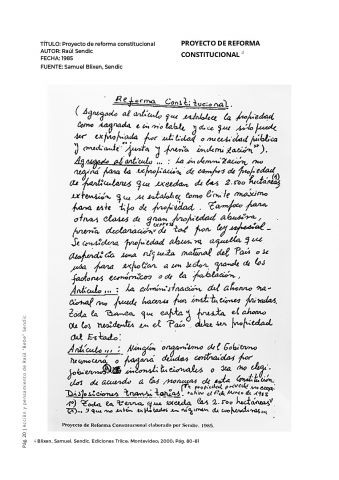 TÍTULO: Proyecto de reforma constitucional
AUTOR: Raúl Sendic
FECHA: 1985
FUENTE: Samuel Blixen, Sendic
PROYECTO DE REFORMA
CONSTITUCIONAL ⁴
Reforma Constitucional.
(Agregado al artículo que establece la propiedad
como sagrada e inviolable y dice que sólo puede
ser expropiada por utilidad o necesidad pública
y mediante "justa y previa indemnización").
Agregado al artículo ... : La indemnización no
regirá para la expropiación de campos de propiedad
de particulares que excedan de las 2.500 hectáreas,
extensión que se establece como límite máximo
para este tipo de propiedad. Tampoco para
otras clases de gran propiedad abusiva,
previa declaración de tal por ley especial.-
Se considera propiedad abusiva aquella que
desperdicia una riqueza natural del País o se
usa para explotar a un sector grande de los
factores económicos o de la población.
Artículo ... : La administración del ahorro na-
cional no puede hacerse por instituciones privadas.
Toda la Banca que capta y presta el ahorro
de los residentes en el País debe ser propiedad
del Estado:
Artículo ... : Ningún organismo del Gobierno
reconocerá o pagará deudas contraídas por
gobiernos inconstitucionales o sea no elegi-
dos de acuerdo a las normas de esta Constitución.
Disposiciones transitorias.
1º) Toda la tierra que exceda las 2.500 hectáreas
... y que no estén explotados en régimen de cooperativas...
Proyecto de Reforma Constitucional elaborado por Sendic. 1985.
⁴ Blixen, Samuel. Sendic. Ediciones Trilce. Montevideo, 2000. Pág. 80-81
Pág. 20 | Acción y pensamiento de Raúl "Rufo" Sendic